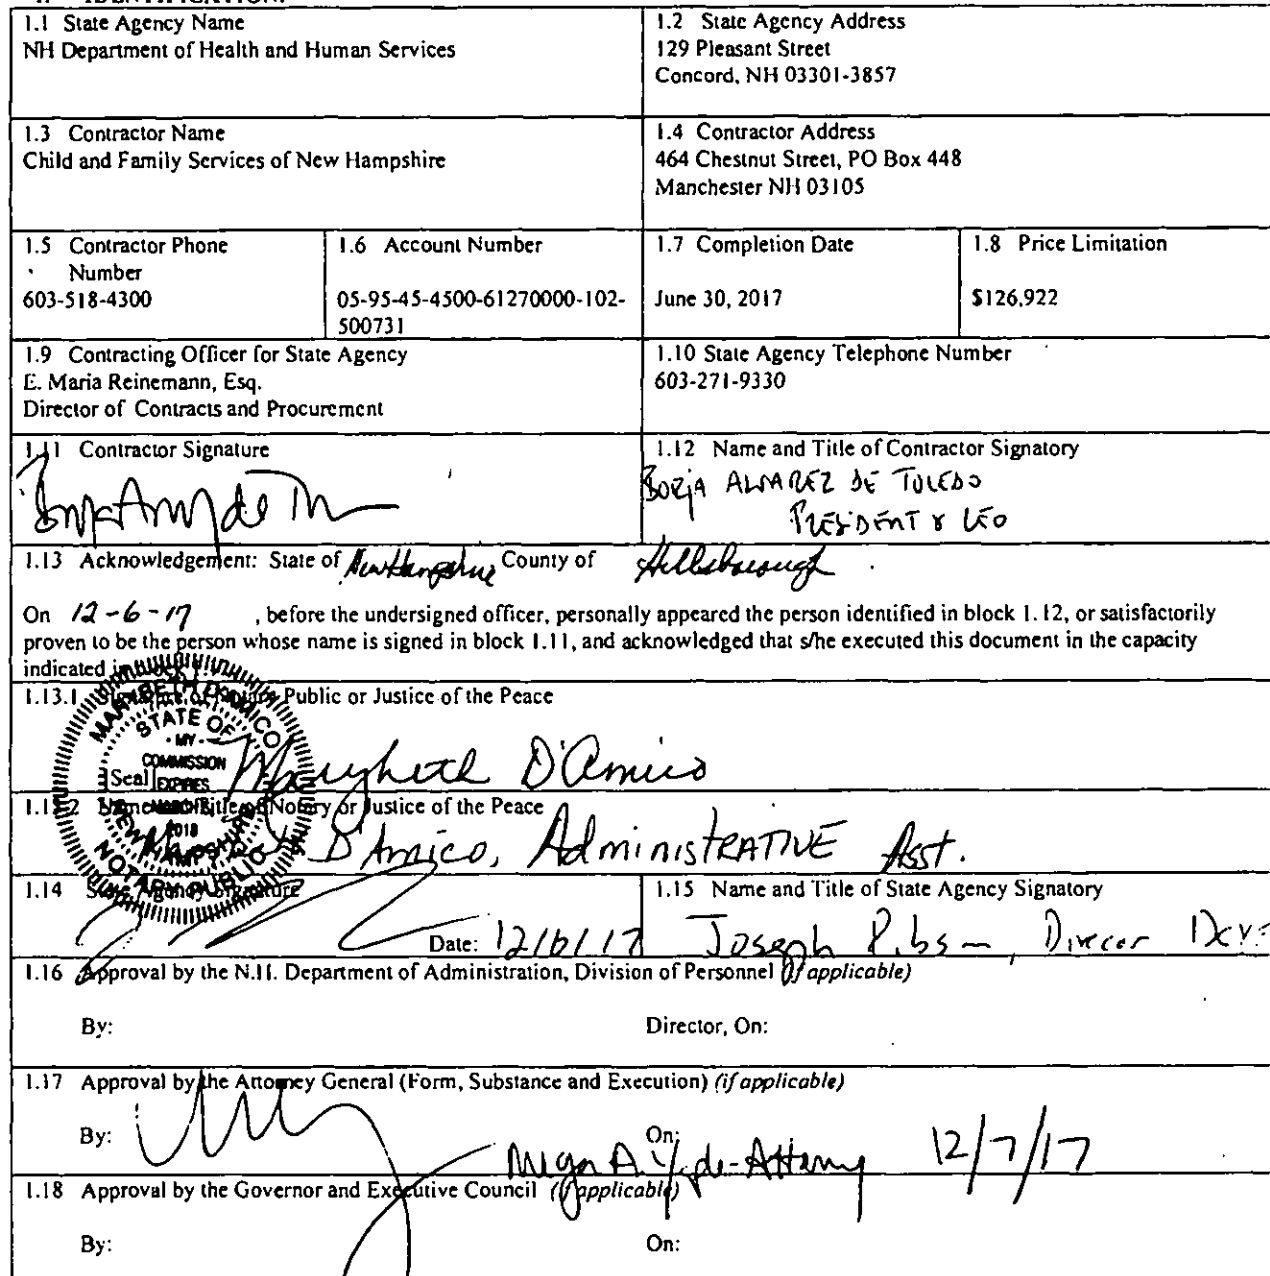 1. IDENTIFICATION.
1.1 State Agency Name
NH Department of Health and Human Services
1.2 State Agency Address
129 Pleasant Street
Concord, NH 03301-3857
1.3 Contractor Name
Child and Family Services of New Hampshire
1.4 Contractor Address
464 Chestnut Street, PO Box 448
Manchester NH 03105
1.5 Contractor Phone
Number
603-518-4300
1.6 Account Number
05-95-45-4500-61270000-102-
500731
1.7 Completion Date
June 30, 2017
1.8 Price Limitation
$126,922
1.9 Contracting Officer for State Agency
E. Maria Reinemann, Esq.
Director of Contracts and Procurement
1.10 State Agency Telephone Number
603-271-9330
1.11 Contractor Signature
1.12 Name and Title of Contractor Signatory
BORJA ALVAREZ DE TOLEDO
PRESIDENT & CEO
1.13 Acknowledgement: State of New Hampshire County of Hillsborough
On 12-6-17 , before the undersigned officer, personally appeared the person identified in block 1.12, or satisfactorily
proven to be the person whose name is signed in block 1.11, and acknowledged that s/he executed this document in the capacity
indicated in block 1.12.
1.13.1 Signature of Notary Public or Justice of the Peace
MARYBETH D'AMICO
STATE OF
MY
COMMISSION
EXPIRES
2018
NEW HAMPSHIRE
NOTARY PUBLIC
[Seal]
Marybeth D'Amico
1.13.2 Name and Title of Notary or Justice of the Peace
D'Amico, AdministRATIVE Asst.
1.14 State Agency Signature
Date: 12/6/17
1.15 Name and Title of State Agency Signatory
Joseph
1.16 Approval by the N.H. Department of Administration, Division of Personnel (if applicable)
By:
Director, On:
1.17 Approval by the Attorney General (Form, Substance and Execution) (if applicable)
By:
On:
12/7/17
1.18 Approval by the Governor and Executive Council (if applicable)
By:
On: